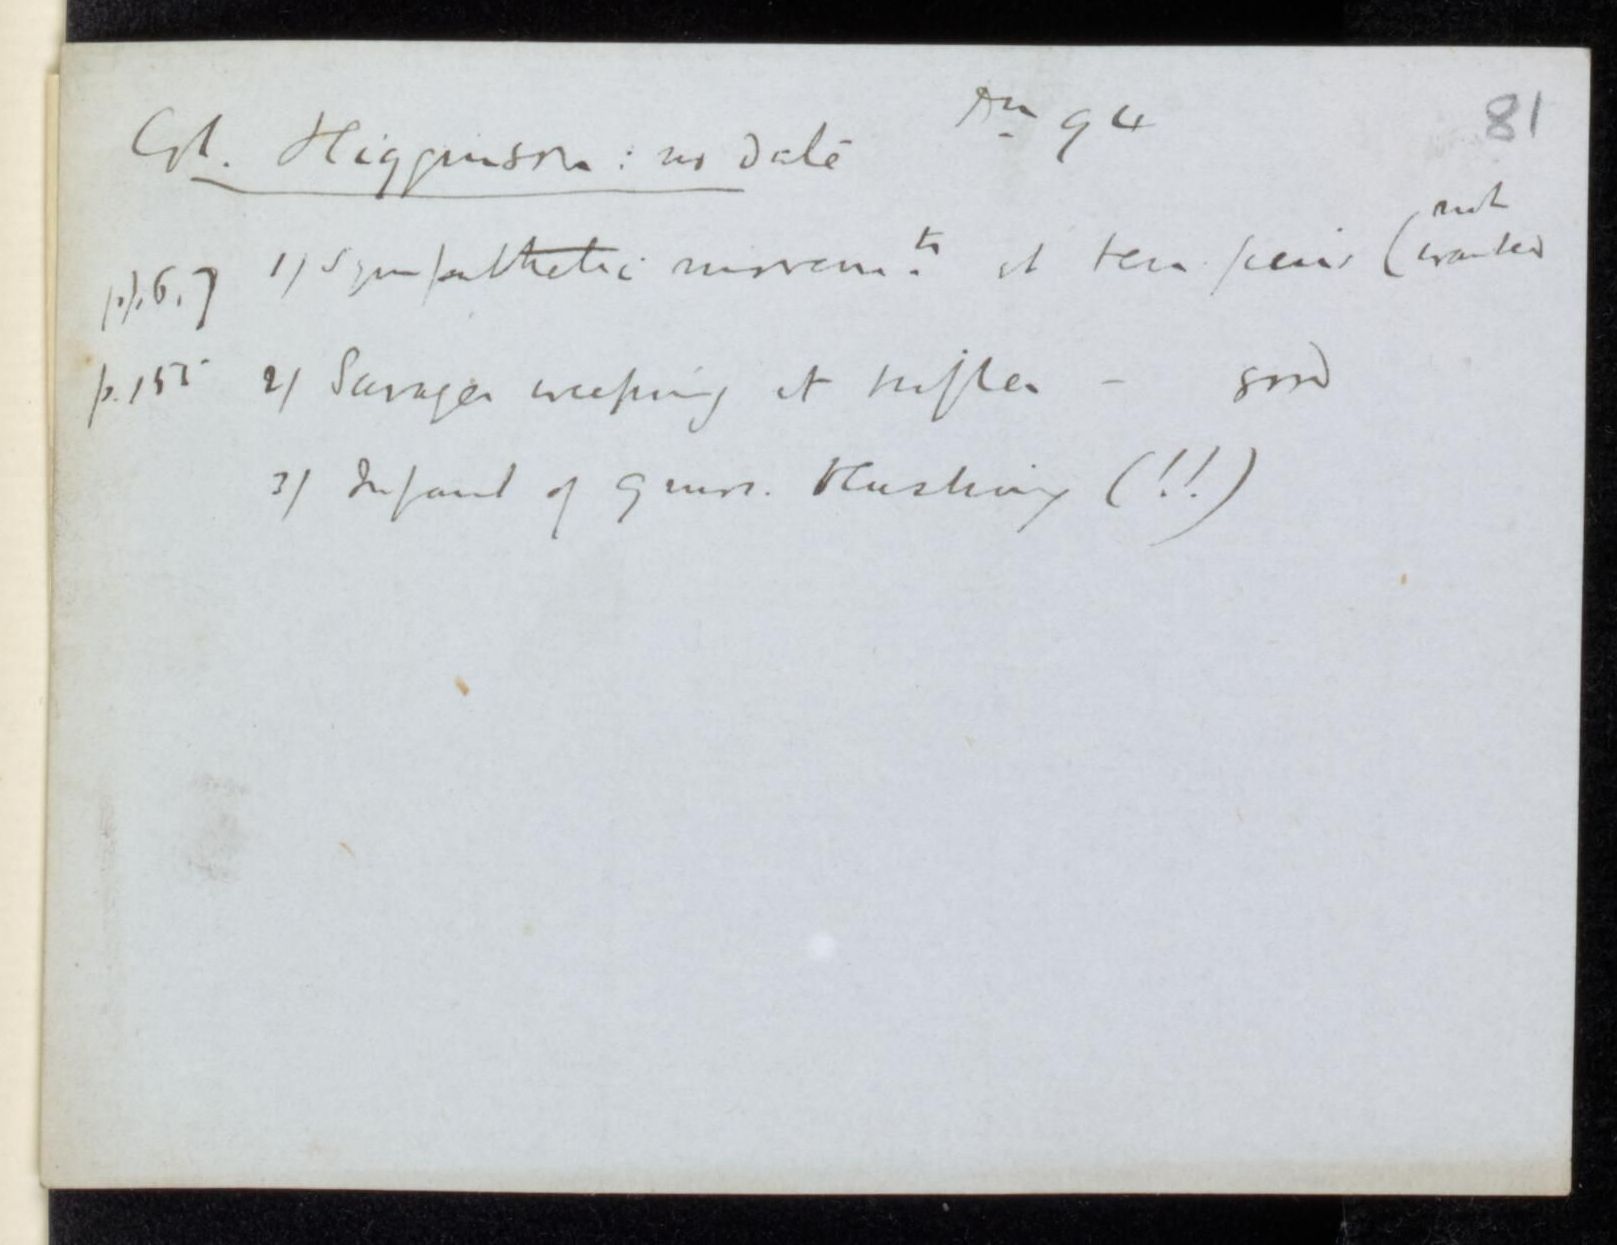 Col. Higginson : no date 94 81
pp. 6, 7 1) Sympathetic movem.ts at (not wanted
p. 155 2) Savages weeping at trifles – good
3) Infant of 9 mos. blushing (!!)